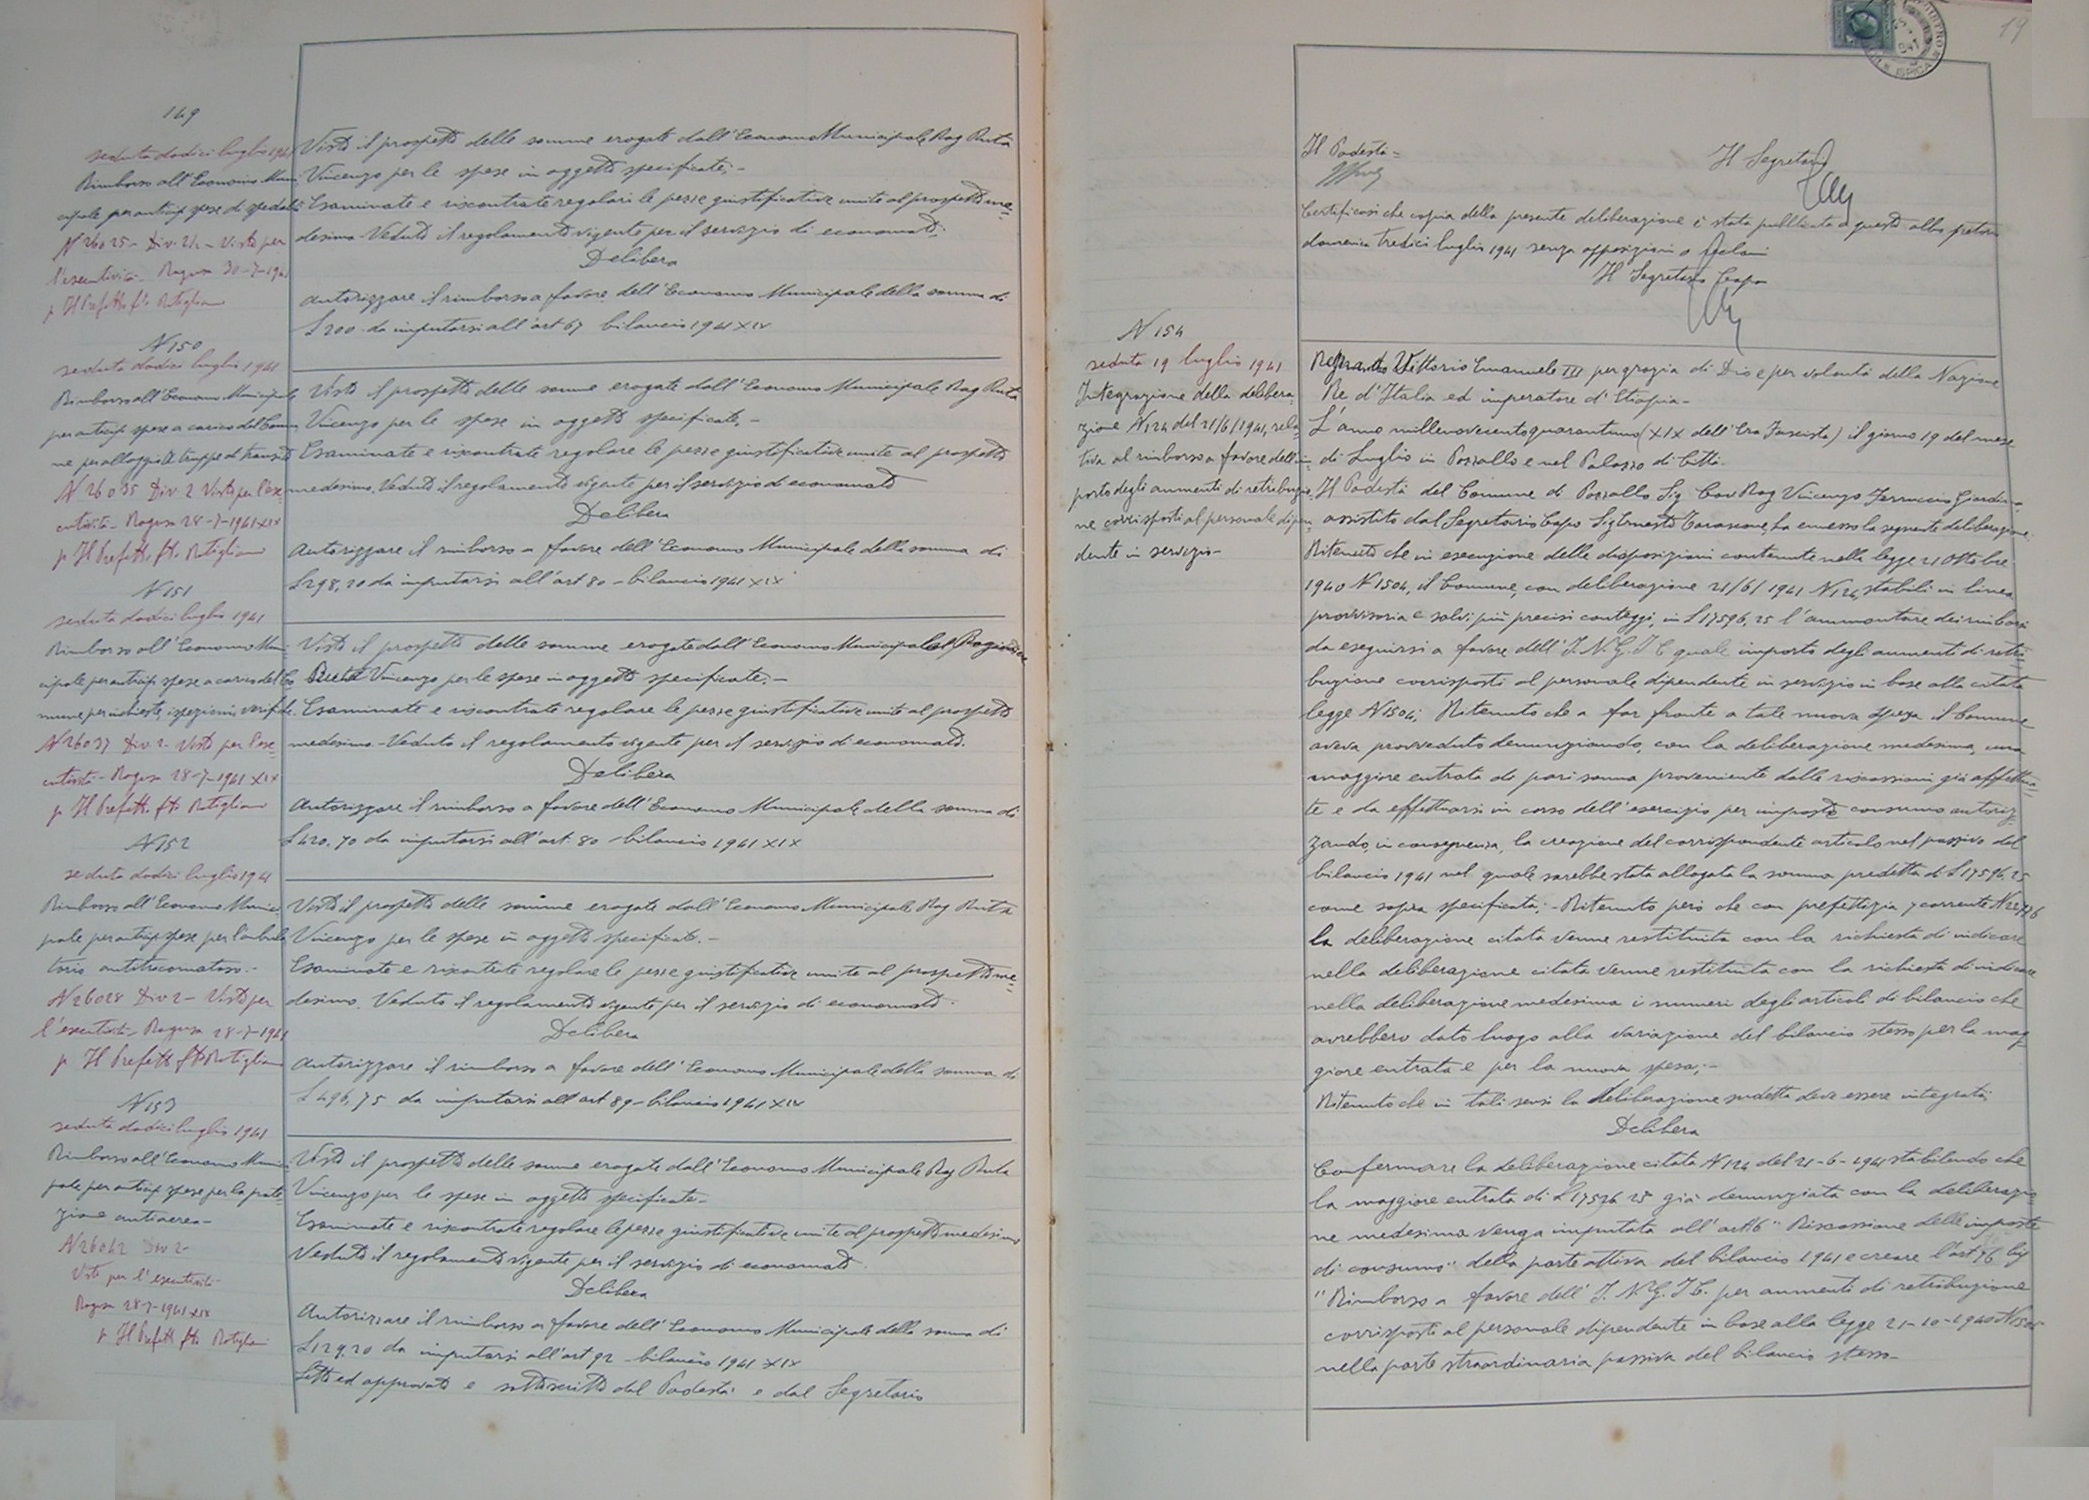 149
seduta dodici luglio 1941
Rimborso all'Economo Muni
cipale per anticip spese di spedali
N 26025 - Div. 2/1 - Visto per
l'esecutività - Ragusa 30-7-1941
p Il Prefetto fto Rotigliano
Visto il prospetto delle somme erogate dall'Economo Municipale Rag Ruta
Vincenzo per le spese in oggetto specificate; -
Esaminate e riscontrate regolari le pezze giustificative unite al prospetto me=
desimo. Veduto il regolamento vigente per il servizio di economato;
Delibera
Autorizzare il rimborso a favore dell'Economo Municipale della somma di
L 200 da imputarsi all'art 67 bilancio 1941 XIX
N 150
seduta dodici luglio 1941
Rimborso all'Economo Municipale
per anticip spese a carico del Comu
ne per alloggio di truppe di transito
N 26035 Div 2 Visto per l'ese=
cutività - Ragusa 28-7-1941 XIX
p Il Prefetto fto Rotigliano
Visto il prospetto delle somme erogate dall'Economo Municipale Rag Ruta
Vincenzo per le spese in oggetto specificate. -
Esaminate e riscontrate regolare le pezze giustificative unite al prospetto
medesimo. Veduto il regolamento vigente per il servizio di economato
Delibera
Autorizzare il rimborso a favore dell'Economo Municipale della somma di
L 298,20 da imputarsi all'art 80 - bilancio 1941 XIX
N 151
seduta dodici luglio 1941
Rimborso all'Economo Muni
cipale per anticip spese a carico del Co
mune per inchieste, ispezioni verifiche
N 26037 Div 2 - Visto per l'ese=
cutività - Ragusa 28-7-1941 XIX
p Il Prefetto fto Rotigliano
Visto il prospetto delle somme erogate dall'Economo Municipale Ragioniere
Ruta Vincenzo per le spese in oggetto specificate. -
Esaminate e riscontrate regolare le pezze giustificative unite al prospetto
medesimo. Veduto il regolamento vigente per il servizio di economato.
Delibera
Autorizzare il rimborso a favore dell'Economo Municipale della somma di
L 420,70 da imputarsi all'art. 80 - bilancio 1941 XIX
N 152
seduta dodici luglio 1941
Rimborso all'Economo Munici
pale per anticip spese per l'ambula
torio antitracomatoso. -
N 26028 Div 2 - Visto per
l'esecutività - Ragusa 28-7-1941
p Il Prefetto fto Rotigliano
Visto il prospetto delle somme erogate dall'Economo Municipale Rag Ruta
Vincenzo per le spese in oggetto specificate. -
Esaminate e riscontrate regolare le pezze giustificative unite al prospetto me=
desimo. Veduto il regolamento vigente per il servizio di economato.
Delibera
Autorizzare il rimborso a favore dell'Economo Municipale della somma di
L 496,75 da imputarsi all'art 89 - bilancio 1941 XIX
N 153
seduta dodici luglio 1941
Rimborso all'Economo Munici
pale per anticip spese per la prote=
zione antiaerea -
N 26042 Div 2 -
Visto per l'esecutività
Ragusa 28-7-1941 XIX
p Il Prefetto fto Rotigliano
Visto il prospetto delle somme erogate dall'Economo Municipale Rag Ruta
Vincenzo per le spese in oggetto specificate -
Esaminate e riscontrate regolare le pezze giustificative unite al prospetto medesimo
Veduto il regolamento vigente per il servizio di economato.
Delibera
Autorizzare il rimborso a favore dell'Economo Municipale della somma di
L 129,20 da imputarsi all'art 92 - bilancio 1941 XIX
Letto ed approvato e sottoscritto dal Podestà e dal Segretario
19
ISPICA
Il Podestà =
Il Segretario
Certificasi che copia della presente deliberazione è stata pubblicata a questo albo pretorio
domenica tredici luglio 1941 senza opposizioni o reclami
Il Segretario Capo
N 154
seduta 19 luglio 1941
Integrazione della delibera
zione N 124 del 21/6/1941, rela=
tiva al rimborso a favore dell'im
porto degli aumenti di retribuzio
ne corrisposti al personale dipen
dente in servizio -
Regnando Vittorio Emanuele III per grazia di Dio e per volontà della Nazione
Re d'Italia ed imperatore d'Etiopia -
L'anno millenovecentoquarantuno (XIX dell'Era Fascista) il giorno 19 del mese
di Luglio in Pozzallo e nel Palazzo di Città.
Il Podestà del Comune di Pozzallo Sig Cav Rag Vincenzo Ferruccio Giardina
assistito dal Segretario Capo Sig Ernesto Tarascone, ha emesso la seguente deliberazione.
Ritenuto che in esecuzione delle disposizioni contenute nella legge 21 Ottobre
1940 N 1504, il Comune, con deliberazione 21/6/1941 N 124, stabilì in linea
provvisoria e salvi più precisi conteggi, in L 17596,25 l'ammontare dei rimborsi
da eseguirsi a favore dell'I.N.G.I.C quale importo degli aumenti di retri=
buzione corrisposti al personale dipendente in servizio in base alla citata
legge N 1504; Ritenuto che a far fronte a tale nuova spesa il Comune
aveva provveduto denunziando, con la deliberazione medesima, una
maggiore entrata di pari somma proveniente dalle riscossioni già effettua=
te e da effettuarsi in corso dell'esercizio per imposte consumo autoriz=
zando, in conseguenza, la creazione del corrispondente articolo nel passivo del
bilancio 1941 nel quale sarebbe stata allogata la somma predetta di L 17596,25
come sopra specificata; - Ritenuto però che con prefettizia 7 corrente
la deliberazione citata venne restituita con la richiesta di indicare
nella deliberazione citata venne restituita con la richiesta di indicare
nella deliberazione medesima i numeri degli articoli di bilancio che
avrebbero dato luogo alla variazione del bilancio stesso per la mag
giore entrata e per la nuova spesa; -
Ritenuto che in tali sensi la deliberazione sudetta deve essere integrata;
Delibera
Confermare la deliberazione citata N 124 del 21-6-1941 stabilendo che
la maggiore entrata di L 17596.25 già denunziata con la deliberazio
ne medesima venga imputata all'art 16 "Riscossione delle imposte
di consumo" della parte attiva del bilancio 1941 e creare l'art 96 bis
"Rimborso a favore dell'I.N.G.I.C. per aumenti di retribuzione
corrisposti al personale dipendente in base alla legge 21-10-1940 N 1504
nella parte straordinaria passiva del bilancio stesso -